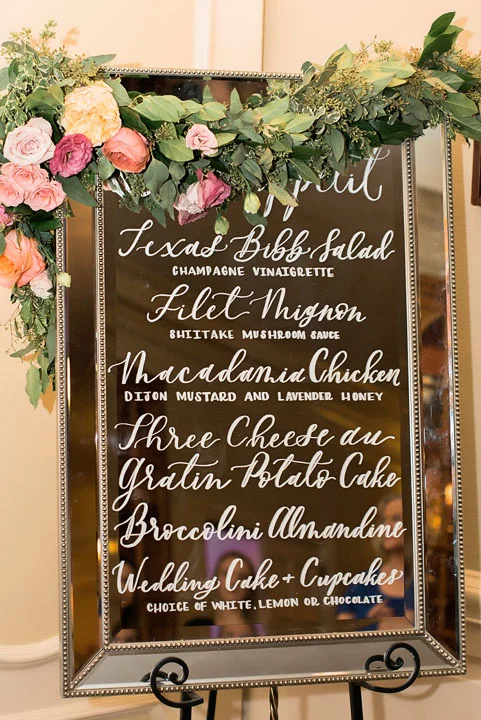 Appetit
Texas Bibb Salad
CHAMPAGNE VINAIGRETTE
Filet Mignon
SHIITAKE MUSHROOM SAUCE
Macadamia Chicken
DIJON MUSTARD AND LAVENDER HONEY
Three Cheese au
Gratin Potato Cake
Broccolini Almandine
Wedding Cake + Cupcakes
CHOICE OF WHITE, LEMON OR CHOCOLATE